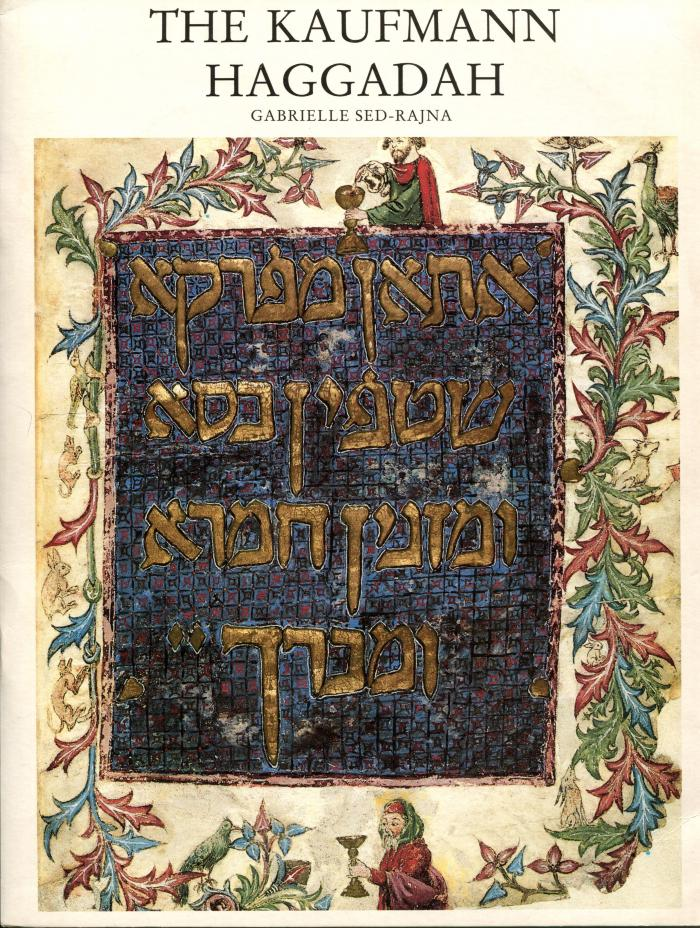 THE KAUFMANN
HAGGADAH
GABRIELLE SED-RAJNA
אתאן מפרקא
שטפין כסא
ומזגין חמרא
ומברך